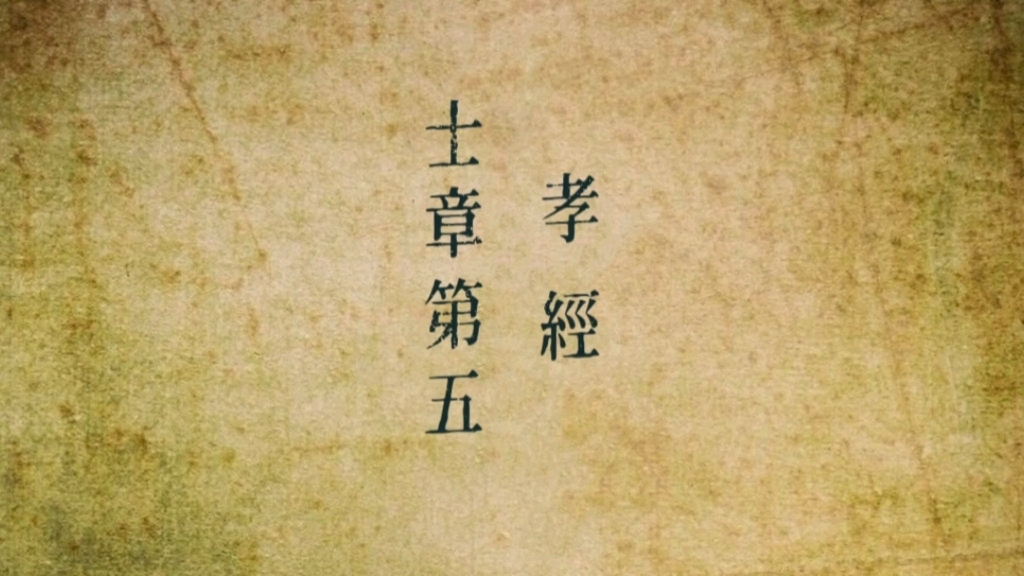 孝經
士章第五